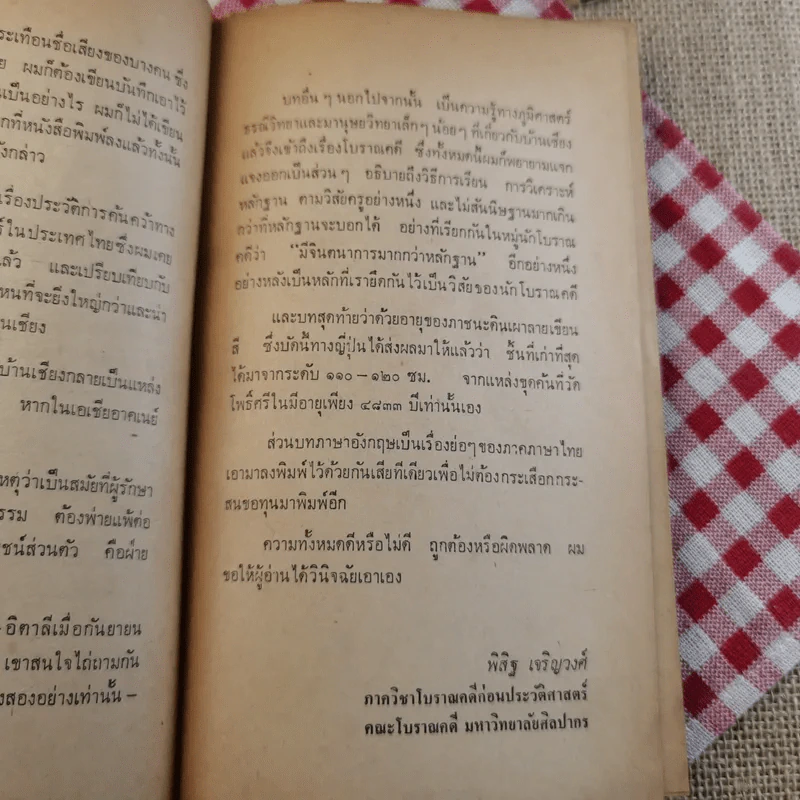 ระเทือนชื่อเสียงของบางคน ซึ่ง
ย ผมก็ต้องเขียนบันทึกเอาไว้
เป็นอย่างไร ผมก็ไม่ได้เขียน
กที่หนังสือพิมพ์ลงแล้วทั้งนั้น
ังกล่าว
เรื่องประวัติการค้นคว้าทาง
ร์ในประเทศไทยซึ่งผมเคย
ล้ว และเปรียบเทียบกับ
หนที่จะยิ่งใหญ่กว่าและน่า
นเชียง
บ้านเชียงกลายเป็นแหล่ง
หากในเอเชียอาคเนย์
หตุว่าเป็นสมัยที่ผู้รักษา
รรม ต้องพ่ายแพ้ต่อ
ชน์ส่วนตัว คือฝ่าย
- อิตาลีเมื่อกันยายน
เขาสนใจไถ่ถามกัน
งสองอย่างเท่านั้น –
บทอื่น ๆ นอกไปจากนั้น เป็นความรู้ทางภูมิศาสตร์
ธรณีวิทยาและมานุษยวิทยาเล็กๆ น้อยๆ ที่เกี่ยวกับบ้านเชียง
แล้วจึงเข้าถึงเรื่องโบราณคดี ซึ่งทั้งหมดนี้ผมก็พยายามแจก
แจงออกเป็นส่วน ๆ อธิบายถึงวิธีการเรียน การวิเคราะห์
หลักฐาน ตามวิสัยครูอย่างหนึ่ง และไม่สันนิษฐานมากเกิน
กว่าที่หลักฐานจะบอกได้ อย่างที่เรียกกันในหมู่นักโบราณ
คดีว่า "มีจินตนาการมากกว่าหลักฐาน" อีกอย่างหนึ่ง
อย่างหลังเป็นหลักที่เรายึดกันไว้เป็นวิสัยของนักโบราณคดี
และบทสุดท้ายว่าด้วยอายุของภาชนะดินเผาลายเขียน
สี ซึ่งบัดนี้ทางญี่ปุ่นได้ส่งผลมาให้แล้วว่า ชิ้นที่เก่าที่สุด
ได้มาจากระดับ ๑๑๐ – ๑๒๐ ซม. จากแหล่งขุดค้นที่วัด
โพธิ์ศรีในมีอายุเพียง ๔๘๓๓ ปีเท่านั้นเอง
ส่วนบทภาษาอังกฤษเป็นเรื่องย่อๆ ของภาคภาษาไทย
เอามาลงพิมพ์ไว้ด้วยกันเสียทีเดียวเพื่อไม่ต้องกระเสือกกระ-
สนขอทุนมาพิมพ์อีก
ความทั้งหมดดีหรือไม่ดี ถูกต้องหรือผิดพลาด ผม
ขอให้ผู้อ่านได้วินิจฉัยเอาเอง
พิสิฐ เจริญวงศ์
ภาควิชาโบราณคดีก่อนประวัติศาสตร์
คณะโบราณคดี มหาวิทยาลัยศิลปากร